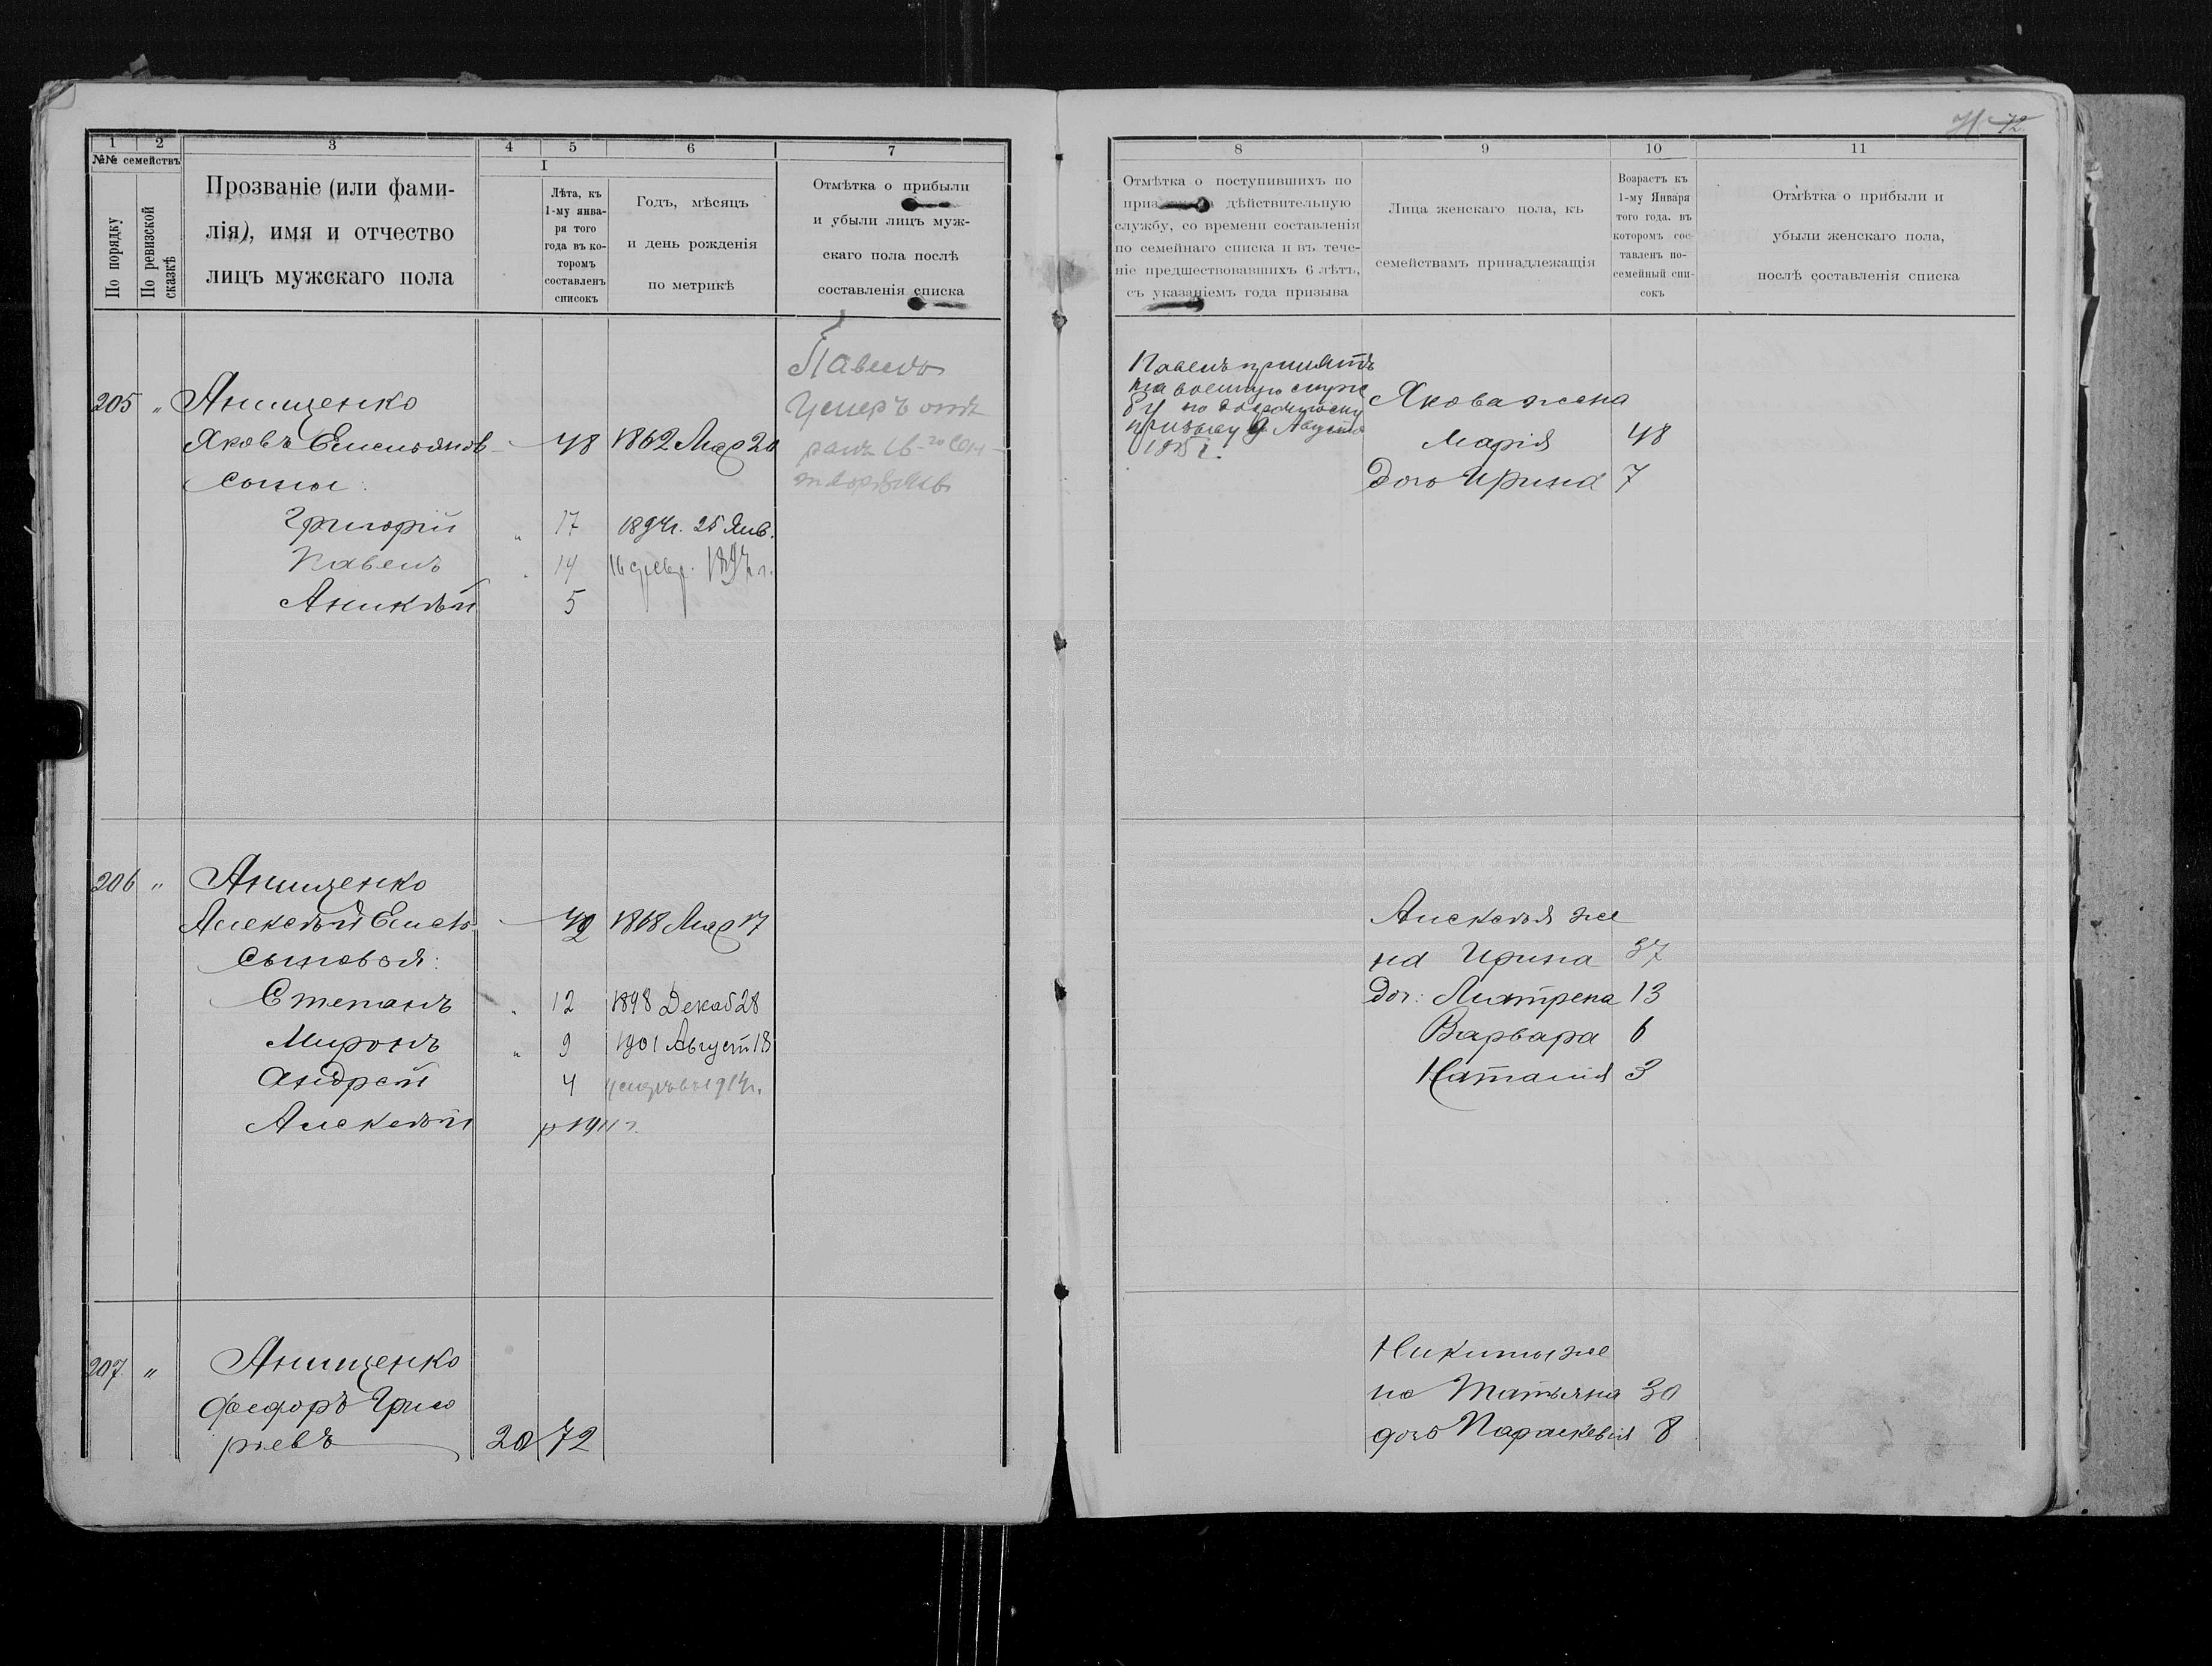 71 72
1 2 3 4 5 6 7
№№ семействъ
По порядку
По ревизской сказкѣ
Прозваніе (или фами-
лія), имя и отчество
лицъ мужскаго пола
I
Лѣта, къ
1-му янва-
ря того
года въ ко-
торомъ
составленъ
списокъ
Годъ, мѣсяцъ
и день рожденія
по метрикѣ
Отмѣтка о прибыли
и убыли лицъ муж-
скаго пола послѣ
составленія списка
205 " Анищенко
Яковъ Емельянов 48 1862 Мар 20
Сыны:
Григорій " 17 1894 г. 25 Янв.
Павелъ " 14 16 февр. 1897 г.
Аникѣй 5
Павелъ
Умеръ отъ
ранъ 16-го Сен-
206 " Анищенко
Алексѣй Емел 42 1868 Мар 17
Сыновья:
Степанъ " 12 1898 Декаб 28
Миронъ " 9 1901 Август 18
Андрей 4 умеръ въ 1914 г.
Алексѣй р 1911 г.
207 " Анищенко
Федоръ Григо
рьевъ 20 72
8 9 10 11
Отмѣтка о поступившихъ по
дѣйствительную
службу, со времени составленія
по семейнаго списка и въ тече-
ніе предшествовавшихъ 6 лѣтъ,
съ указаніемъ года призыва
Лица женскаго пола, къ
семействамъ принадлежащія
Возрастъ къ
1-му Января
того года. въ
которомъ сос-
тавленъ по-
семейный спи-
сокъ
Отмѣтка о прибыли и
убыли женскаго пола,
послѣ составленія списка
Павелъ принятъ
на военную служ
бу по досрочному
призыву Августа
Якова жена
Марія 48
Дочь Ирина 7
Алексѣя же
на Ирина 37
Доч: 13
Варвара 6
Наталія 3
Никиты же
на Татьяна 30
дочь Параскевія 8